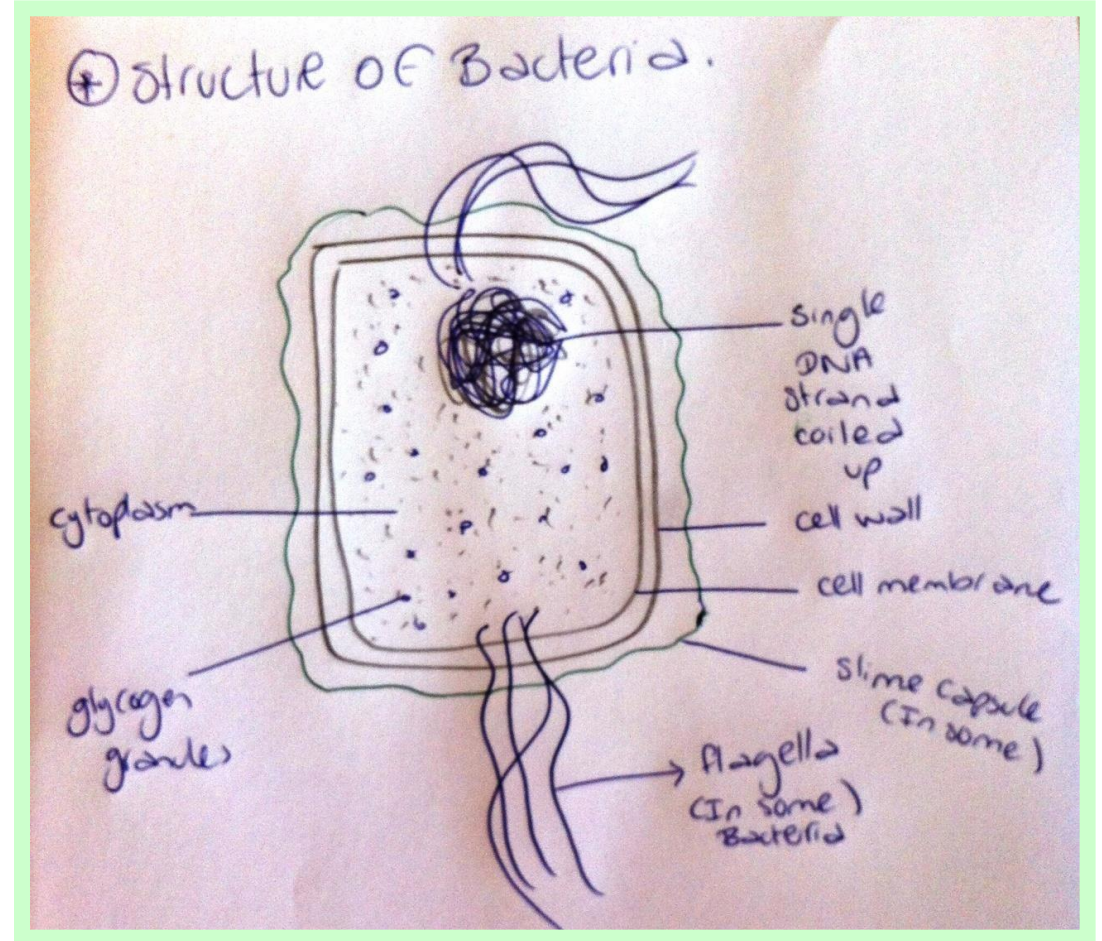 ⊛ Structure of Bacteria.
single
DNA
strand
coiled
up
cytoplasm
cell wall
cell membrane
slime capsule
(In some)
glycogen
granules
flagella
(In some)
Bacteria